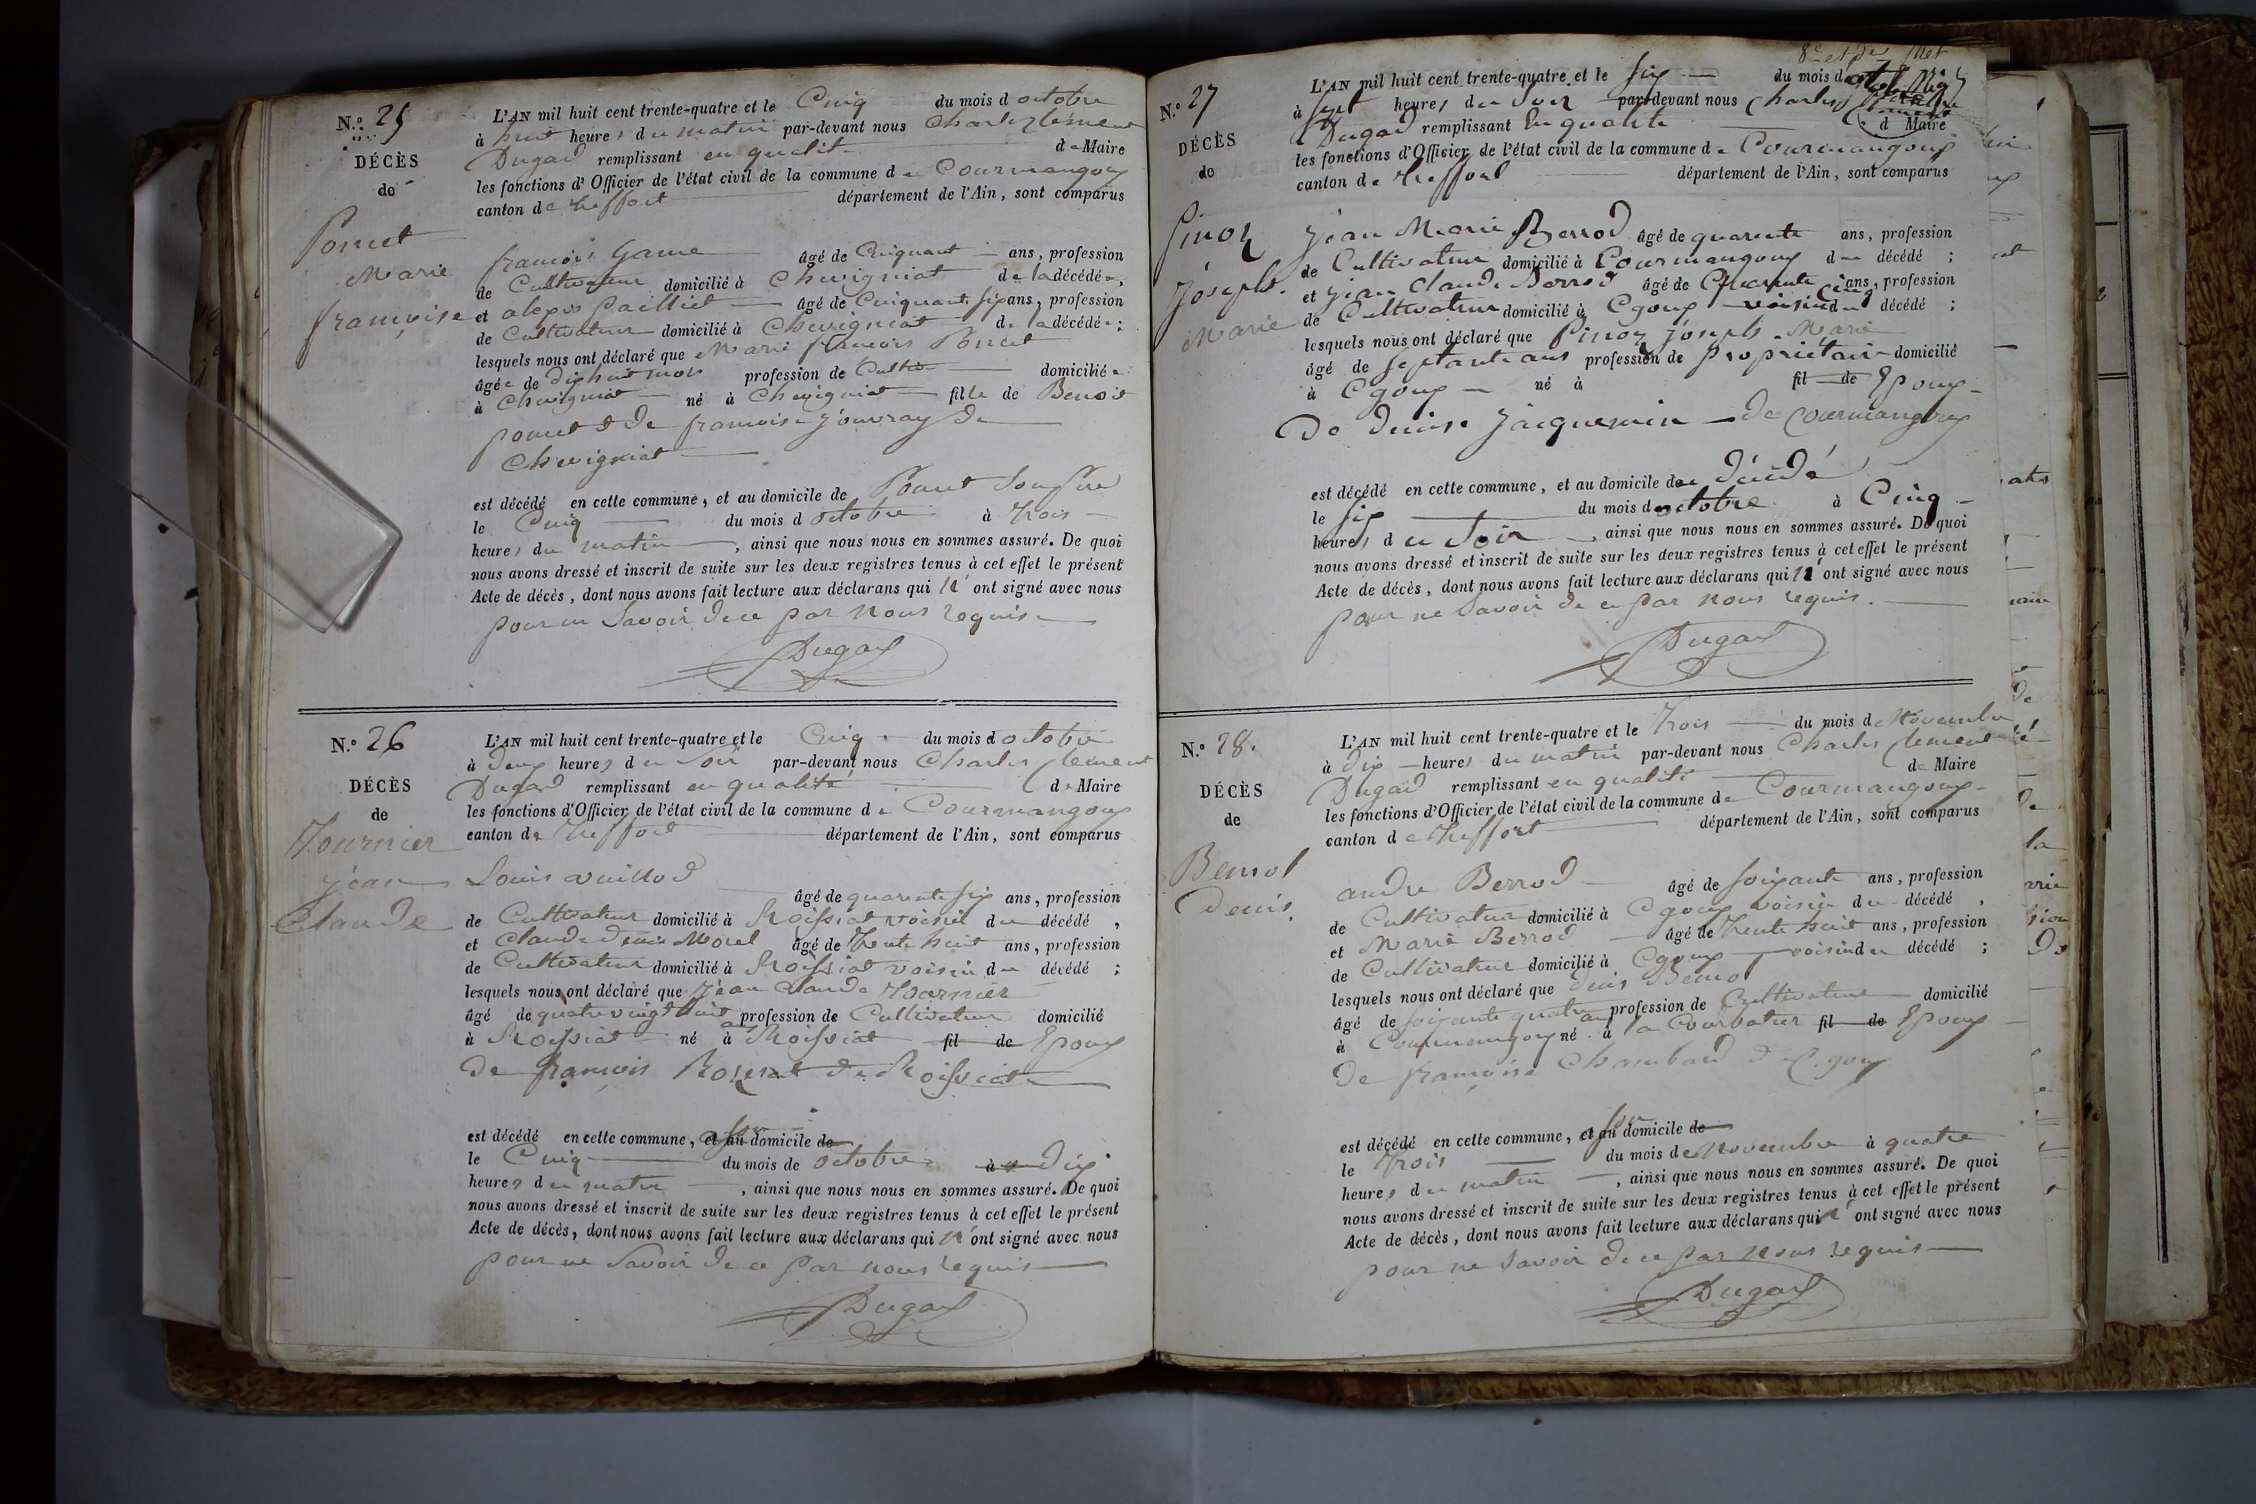 N.o 25
DÉCÈS
de
Poncet
Marie
françoise
L'AN mil huit cent trente-quatre et le Cinq du mois d octobre
à huit heures du matin par-devant nous Charles Clément
Dugad remplissant en qualité de Maire
les fonctions d'Officier de l'état civil de la commune de Courmangoux
canton de Treffort département de l'Ain, sont comparus
françois Game âgé de Cinquant ans, profession
de Cultivateur domicilié à Chevigniat de la décédée,
et alexis Pailliet âgé de Cinquant six ans, profession
de Cultivateur domicilié à Chevigniat de la décédée;
lesquels nous ont déclaré que Marie françoise Poncet
âgée de dix huit mois profession de domiciliée
à Chevigniat né à Chevigniat fille de Benoit
poncet & de françoise Jouvray de
Chevigniat
est décédé en cette commune, et au domicile de Poncet Son Père
le Cinq du mois d octobre à trois
heures du matin, ainsi que nous nous en sommes assuré. De quoi
nous avons dressé et inscrit de suite sur les deux registres tenus à cet effet le présent
Acte de décès, dont nous avons fait lecture aux déclarans qui n'ont signé avec nous
pour ne Savoir de ce par nous requis
Dugad
N.o 26
DÉCÈS
de
Tournier
jean
Claude
L'AN mil huit cent trente-quatre et le Cinq du mois d octobre
à deux heures du Soir par-devant nous Charles Clément
Dugad remplissant en qualité de Maire
les fonctions d'Officier de l'état civil de la commune de Courmangoux
canton de Treffort département de l'Ain, sont comparus
Louis vuillod âgé de quarente six ans, profession
de Cultivateur domicilié à Roissiat voisin du décédé,
et Claude denis Morel âgé de Trente huit ans, profession
de Cultivateur domicilié à Roissiat voisin du décédé;
lesquels nous ont déclaré que Jean Claude Tournier
âgé de quatre vingt huit ans profession de Cultivateur domicilié
à Roissiat né à Roissiat fil de Epoux
de françois de Roissiat
est décédé en cette commune, et au Son domicile de
le Cinq du mois de octobre à dix
heures du matin, ainsi que nous nous en sommes assuré. De quoi
nous avons dressé et inscrit de suite sur les deux registres tenus à cet effet le présent
Acte de décès, dont nous avons fait lecture aux déclarans qui n'ont signé avec nous
pour ne Savoir de ce par nous requis
Dugad
N.o 27
DÉCÈS
de
Pinoz
Joseph
Marie
L'AN mil huit cent trente-quatre et le six du mois d octobre
à sept heures du Soir par-devant nous Charles Clément
Dugad remplissant En qualité d Maire
les fonctions d'Officier de l'état civil de la commune de Courmangoux
canton de Treffort département de l'Ain, sont comparus
Jean Marie Berrod âgé de quarente ans, profession
de Cultivateur domicilié à Courmangoux du décédé;
et Jean Claude Berrod âgé de Quarente Cinq ans, profession
de Cultivateur domicilié à Cgoux voisin du décédé;
lesquels nous ont déclaré que Pinoz Joseph Marie
âgé de septante ans profession de propriétair domicilié
à Cgoux né à fil de Epoux
de denise Jacquemin de Courmangoux
est décédé en cette commune, et au domicile du décédé
le six du mois d octobre à Cinq
heures du Soir, ainsi que nous nous en sommes assuré. De quoi
nous avons dressé et inscrit de suite sur les deux registres tenus à cet effet le présent
Acte de décès, dont nous avons fait lecture aux déclarans qui n'ont signé avec nous
pour ne Savoir de ce par nous requis.
Dugad
N.o 28.
DÉCÈS
de
Benod
denis.
L'AN mil huit cent trente-quatre et le trois du mois de Novembre
à dix heures du matin par-devant nous Charles Clement
Dugad remplissant en qualité de Maire
les fonctions d'Officier de l'état civil de la commune de Courmangoux
canton de Treffort département de l'Ain, sont comparus
andre Berrod âgé de soixante ans, profession
de Cultivateur domicilié à Cgoux voisin du décédé,
et Marie Berrod âgé de trente huit ans, profession
de Cultivateur domicilié à Cgoux voisin du décédé;
lesquels nous ont déclaré que denis
âgé de soixante quatre ans profession de Cultivateur domicilié
à Courmangoux né à la Courbatier fil de Epoux
de françoise Chambard de Cgoux
est décédé en cette commune, et au Son domicile de
le trois du mois de Novembre à quatre
heures du matin, ainsi que nous nous en sommes assuré. De quoi
nous avons dressé et inscrit de suite sur les deux registres tenus à cet effet le présent
Acte de décès, dont nous avons fait lecture aux déclarans qui n'ont signé avec nous
pour ne Savoir de ce par nous requis
Dugad